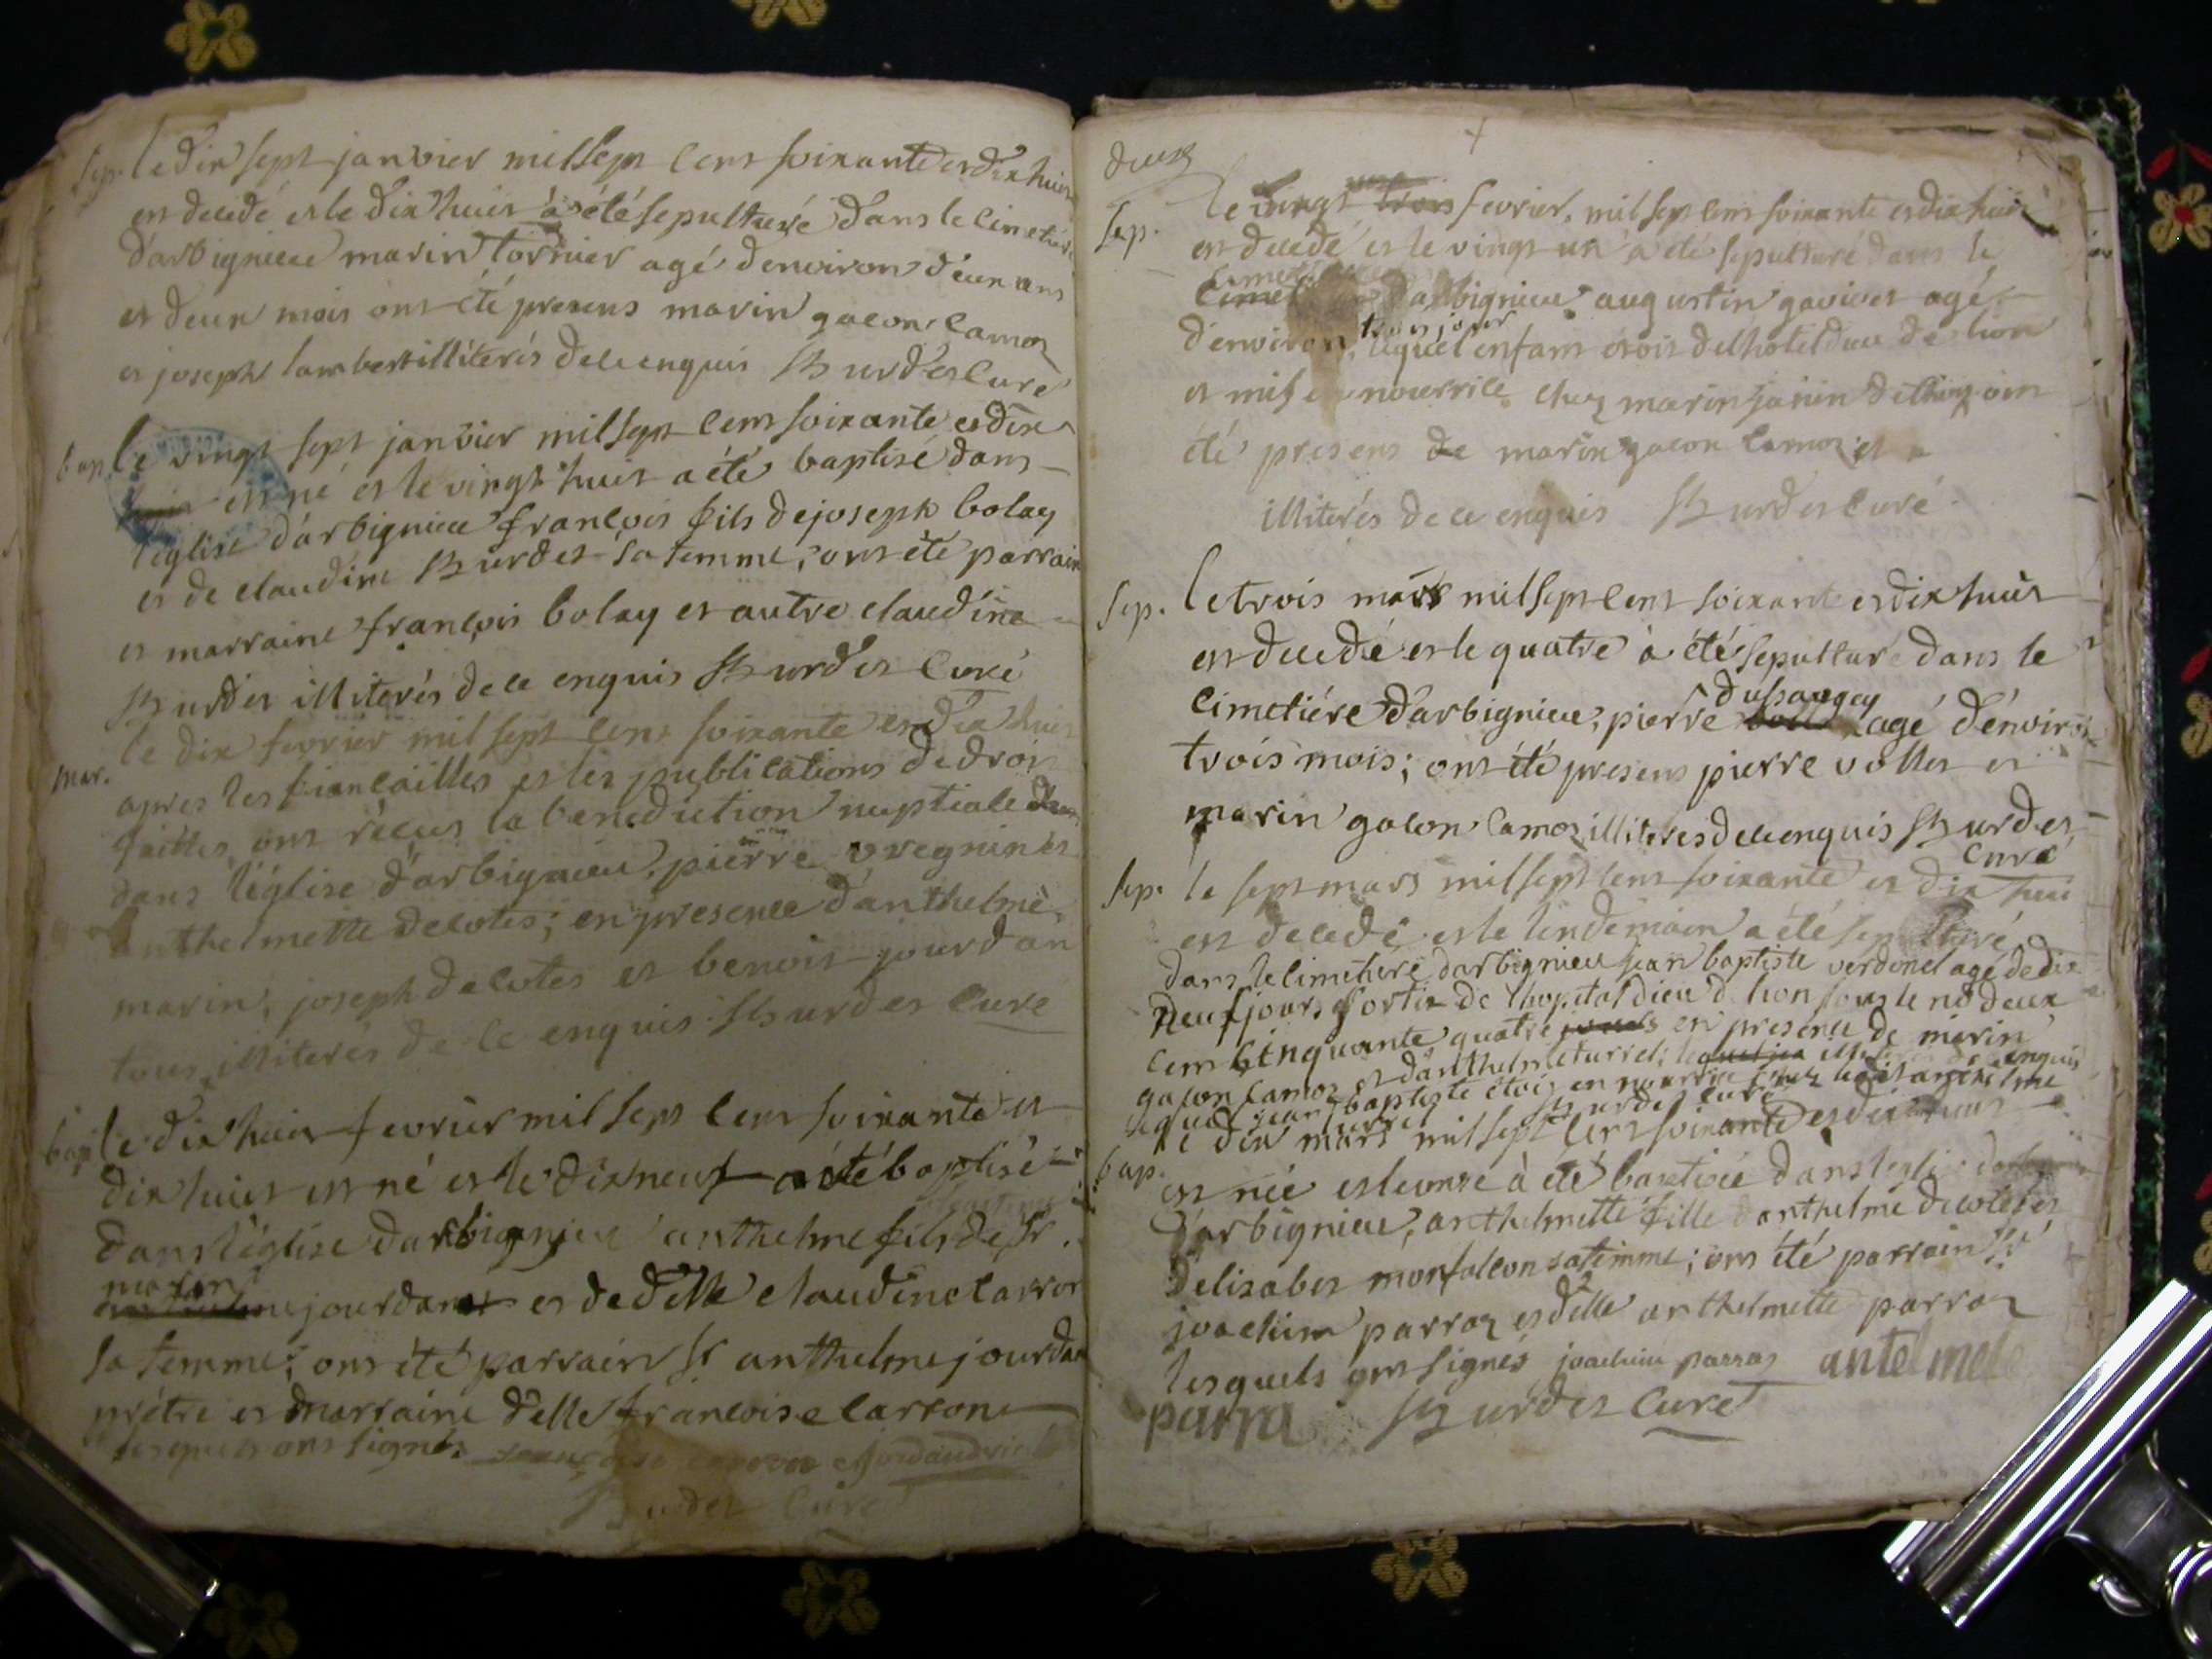 sep. le dix sept janvier mil sept cent soixante et dix huit
est decedé et le dix huit à été sepulturé dans le cimetiére
d'arbignieu marin tornier agé d'environ deux ans
et deux mois ont été presens marin gacon camoz
et joseph lambert illiterés de ce enquis Burdet curé
bap. le vingt sept janvier mil sept cent soixante et dix
huit est né et le vingt huit a été baptisé dans
l'église d'arbignieu françois fils de joseph bolay
et de claudine Burdet sa femme, ont été parrain
et marraine françois bolay et autre claudine
Burdet illiterés de ce enquis Burdet Curé
le dix fevrier mil sept cent soixante et dix huit
mar. apres les fiancailles et les publications de droit
faittes ont réçus la benediction nuptiale
dans l'église d'arbignieu, pierre vregnin et
anthelmette decotes; en presence d'anthelme
marin, joseph decotes et benoit jourdan
tous illiterés de ce enquis Burdet Curé
bap. le dix huit fevrier mil sept cent soixante et
dix huit est né et le dix neuf a été baptisé
dans l'église d'arbignieu anthelme fils de Sr.
marin
jourdan et de delle claudine carron
sa femme; ont été parrain Sr anthelme jourdan
prétre et marraine d'elle françoise carron
lesquels ont signés
Burdet Curé
deux
sep. le vingt trois fevrier, mil sept cent soixante et dix huit
est decedé et le vingt un a été sepulturé dans le
d'arbignieu augustin gavivet agé
trois jour
d'environ, lequel enfant etoit de lhotel dieu de lion
et mis en nourrice chez marin janin de thoy ont
été presens de marin gacon camoz et
illiterés de ce enquis Burdet curé
sep. le trois mars mil sept cent soixante et dix huit
est decedé et le quatre à été sepulturé dans le
dussaugey
cimetiére d'arbignieu, pierre agé d'environ
trois mois; ont été presens pierre vollet et
marin gacon camoz illiterés de ce enquis Burdet
curé
sep. le sept mars mil sept cent soixante et dix huit
est decedé et le lindemain a été sepulturé
dans le cimetiére d'arbignieu jean baptiste verdonel agé de dix
neuf jours sortis de lhopital dieu de lion sous le no deux
cent cinquante quatre en presence de marin
gacon camoz et d'anthelme turrel; illiterés de ce enquis
lequel jean baptiste étoit en nourrice chez ledit anthelme
turrel Burdet curé
bap. le dix mars mil sept cent soixante et dix huit
est née et le onze à été baptisée dans l'église
d'arbignieu, anthelmette fille d'anthelme decotes et
d'elisabet monfalcon sa femme; ont été parrain Sr
joachim parraz et delle anthelmette parraz
lesquels ont signés joachim parraz antelmete
parra Burdet Curé